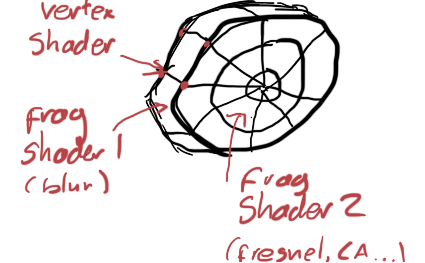 vertex
Shader
Frag
Shader 1
(blur)
Frag
Shader 2
(fresnel, CA...)